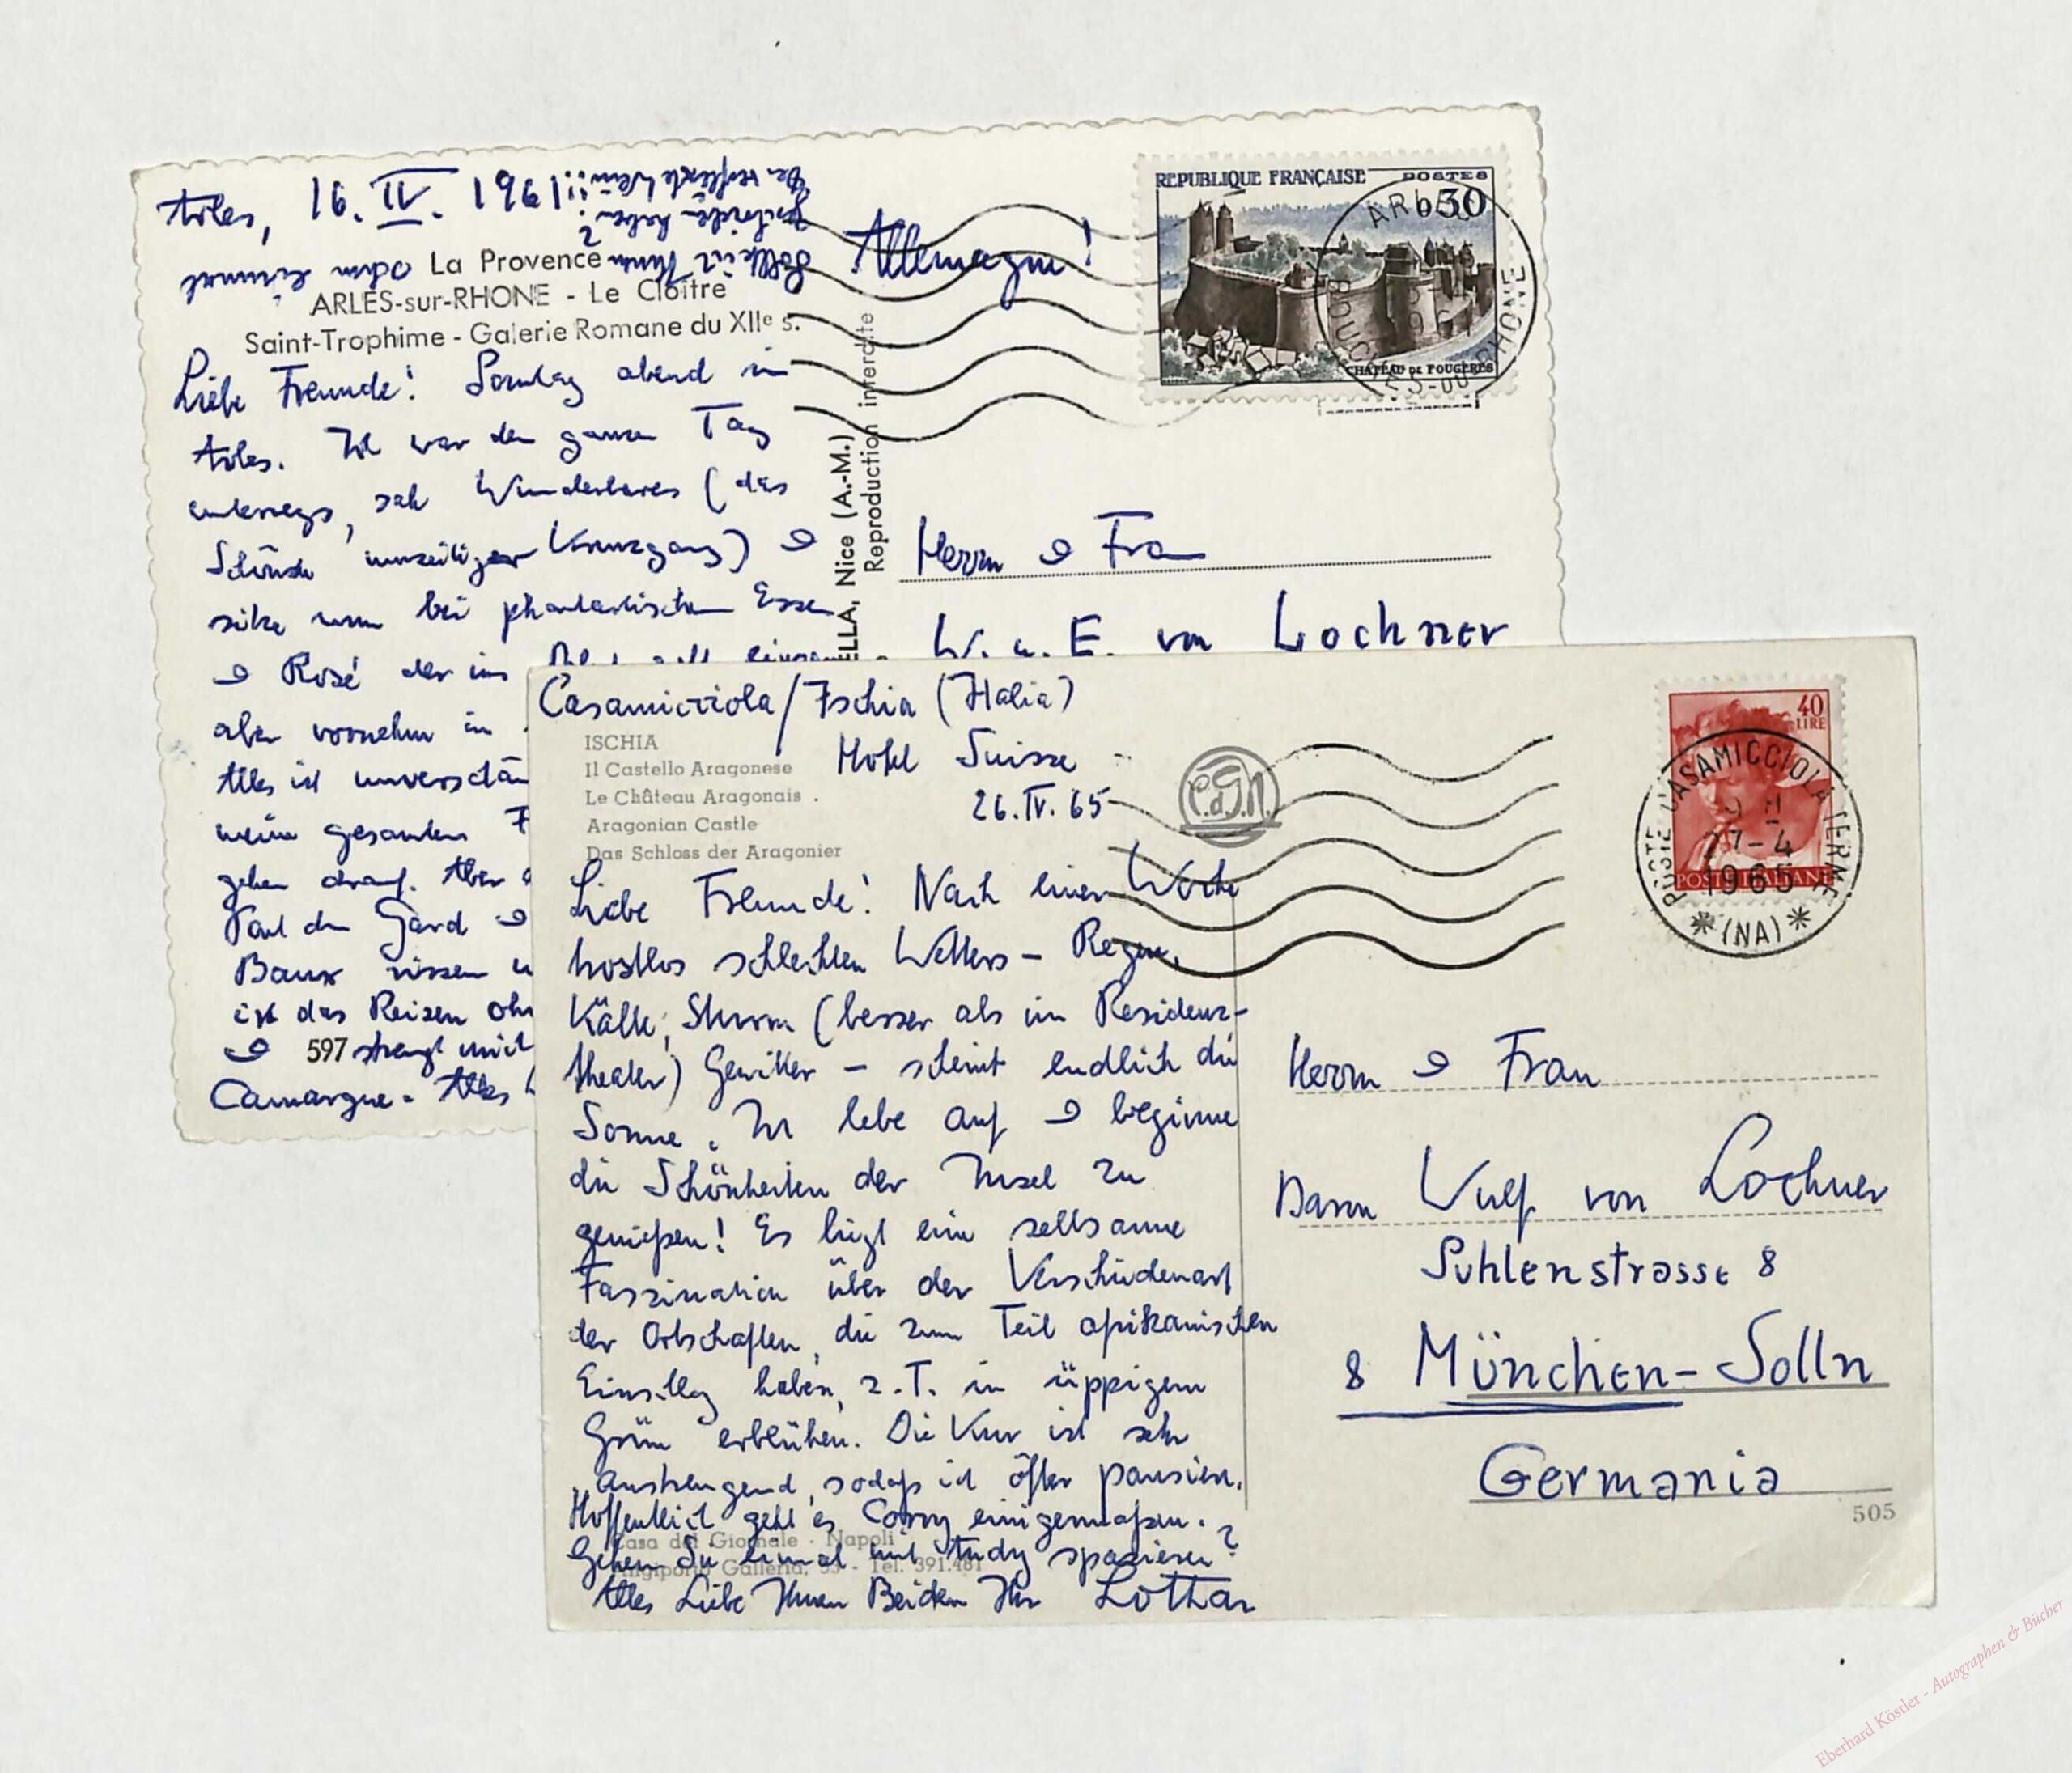 Arles, 16. IV. 1961
La Provence
ARLES-sur-RHONE - Le Cloître
Saint-Trophime - Galerie Romane du XIIe s.
Liebe Freunde! Sonntag abend in
Arles. Ich war den ganzen Tag
unterwegs, sah Wunderbares (das
Schönste Kreuzgang) &
sitze nun bei phantastischem Essen
& Rosé der ins
aber vornehm in
Alles ist unverschäm
meine gesamten F
gehen drauf. Aber
Pont du Gard &
Baux
ist das Reisen ohn
& strengt mich
597
Camargue. Alles
Sollte ich Ihnen
schon einmal
geschrieben haben?
Der verflixte Wein!!!
ELLA, Nice (A.-M.)
Reproduction interdite
Allemagne!
REPUBLIQUE FRANÇAISE POSTES
0,30
CHATEAU DE FOUGERES
ARLES
BOUCHES-DU-RHONE
Herrn & Frau
W. u. E. von Lochner
Casamicciola/Ischia (Italia)
Hotel Suisse
26.IV.65
ISCHIA
Il Castello Aragonese
Le Château Aragonais .
Aragonian Castle
Das Schloss der Aragonier
Liebe Freunde! Nach einer Woche
trostlos schlechten Wetters – Regen,
Kälte, Sturm (besser als im Residenz-
theater) Gewitter – scheint endlich die
Sonne. Ich lebe auf & beginne
die Schönheiten der Insel zu
genießen! Es liegt eine seltsame
Faszination über der Verschiedenart
der Ortschaften, die zum Teil afrikanischen
Einschlag haben, z.T. in üppigem
Grün erblühen. Die Kur ist sehr
anstrengend, sodaß ich öfter pausiere.
Hoffentlich geht es Conny einigermaßen.
Gehen Sie einmal mit Andy spazieren?
Alles Liebe Ihnen Beiden Ihr Lothar
Casa del Giornale - Napoli
Angiporto Galleria, 53 - Tel. 391.481
C.d.G.N.
40
LIRE
POSTE ITALIANE
POSTE CASAMICCIOLA TERME
27-4
1965
(NA)
Herrn & Frau
Baron Wulf von Lochner
Sohlenstrasse 8
8 München-Solln
Germania
505
Eberhard Köstler - Autographen & Bücher